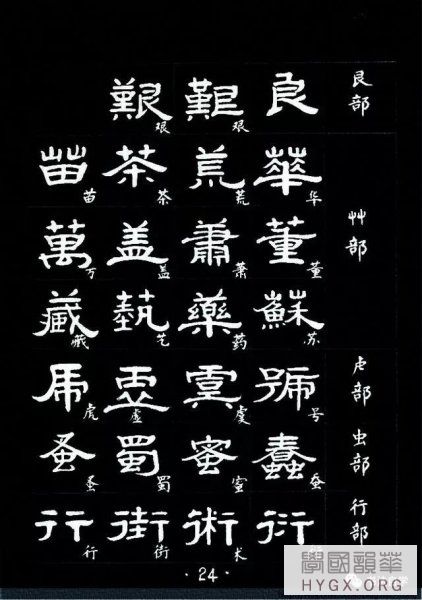 艮部 良 艱艰 艱艰
艸部 華华 荒荒 茶茶 苗苗
董董 蕭萧 盖盖 萬万
蘇苏 藥药 艺 藏藏
虍部 號号 虞虞 虚虚 虎虎
虫部 蠢 蜜蜜 蜀蜀 蚤蚤
行部 衍 術术 街街 行行
·24·
華韻國學
HYGX.ORG